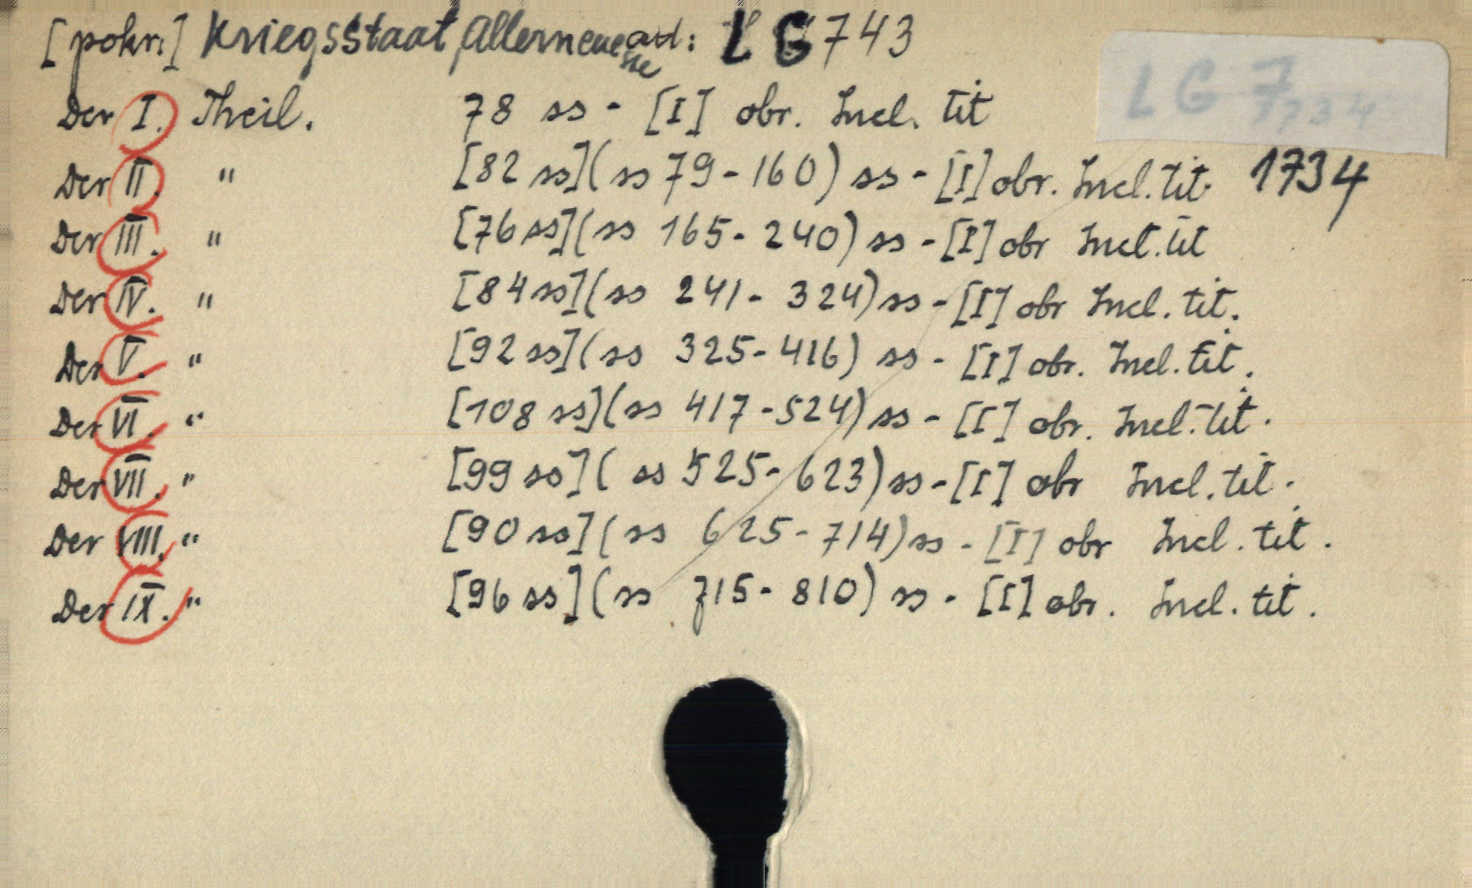 [pokr:] Kriegsstaat, Allerneueste atd: LG 743
LG 7
1734
Der I. Theil. 78 ss - [I] obr. Incl. tit
Der II. " [82 ss] (ss 79-160) ss - [I] obr. Incl. tit. 1734
Der III. " [76 ss] (ss 165-240) ss - [I] obr Incl. tit
Der IV. " [84 ss] (ss 241-324) ss - [I] obr Incl. tit.
Der V. " [92 ss] (ss 325-416) ss - [I] obr. Incl. tit.
Der VI. " [108 ss] (ss 417-524) ss - [I] obr. Incl. tit.
Der VII. " [99 ss] (ss 525-623) ss - [I] obr Incl. tit.
Der VIII. " [90 ss] (ss 625-714) ss - [I] obr Incl. tit.
Der IX. " [96 ss] (ss 715-810) ss - [I] obr. Incl. tit.